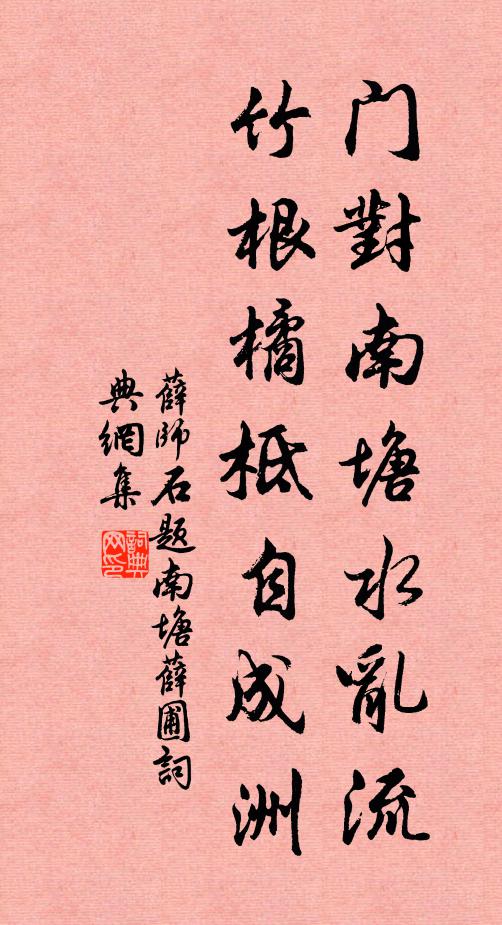 门對南塘水亂流
竹根橘柢自成洲
薛師石题南塘薛圃詞
典網集
詞典
网印